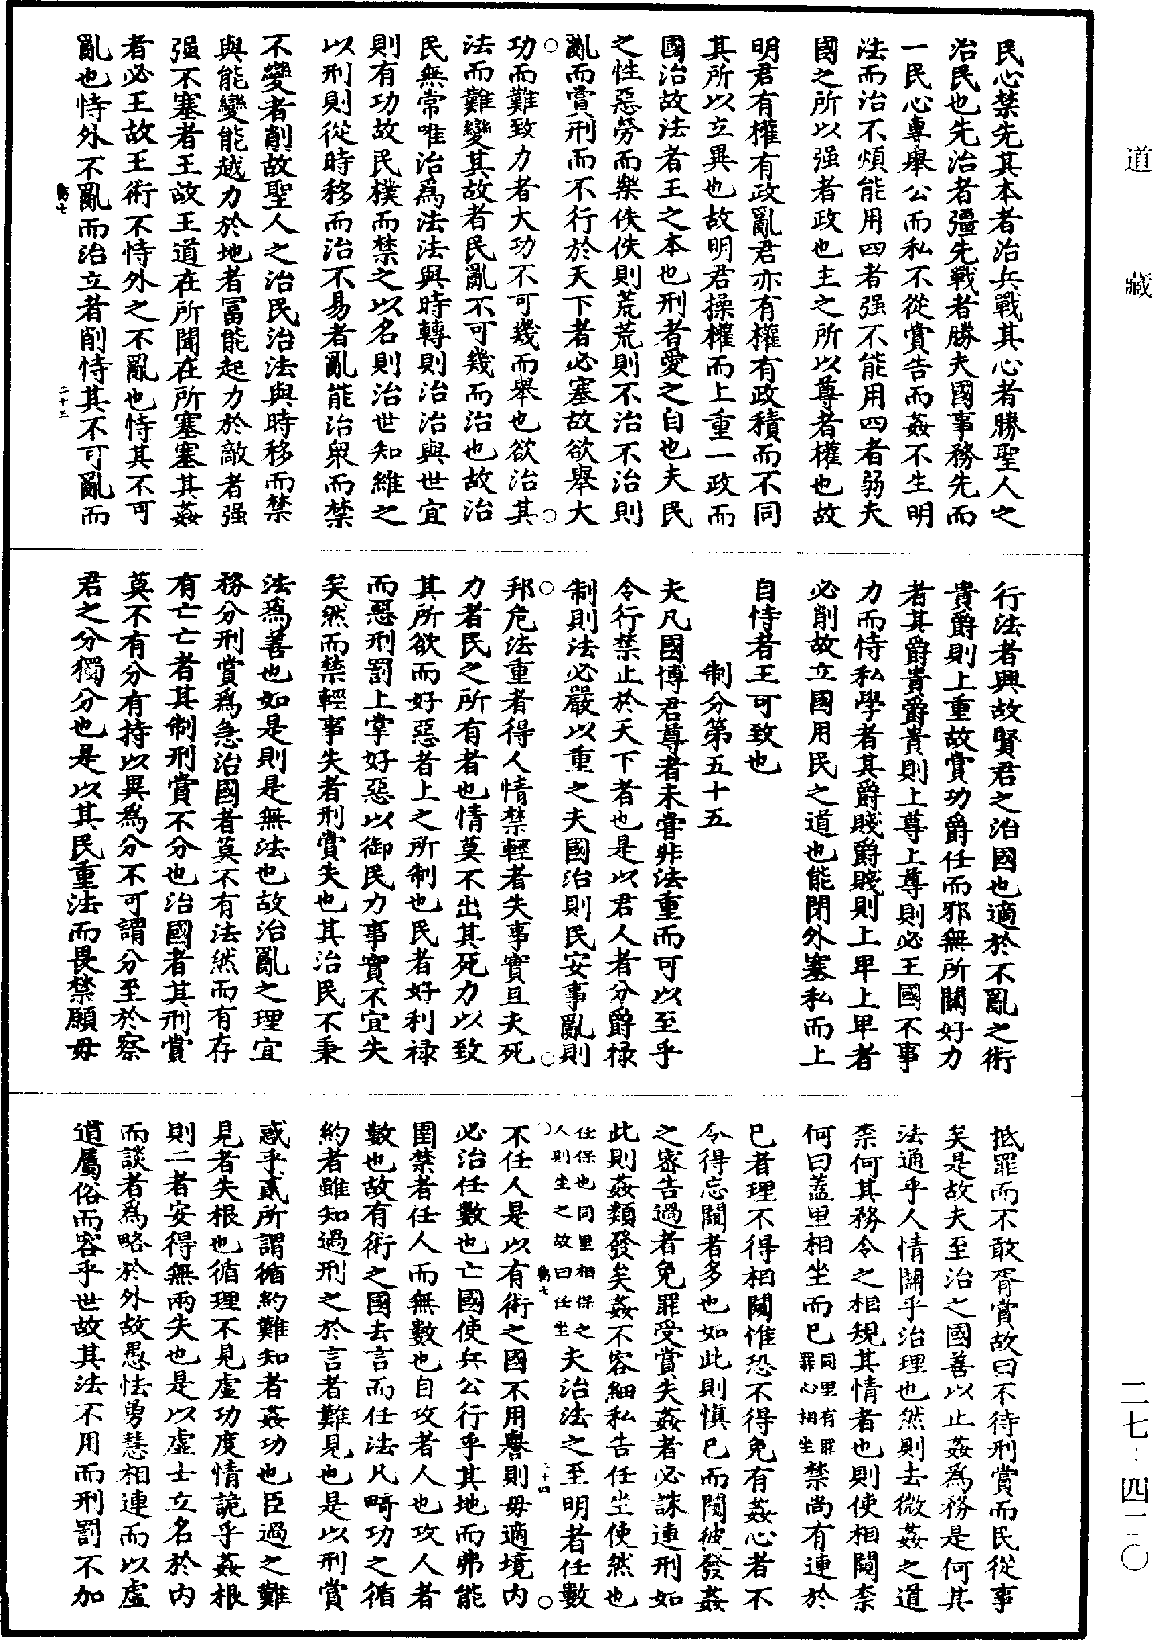 道藏
二七·四一〇
民心禁先其本者治兵戰其心者勝聖人之
治民也先治者彊先戰者勝夫國事務先而
一民心專舉公而私不從賞告而姦不生明
法而治不煩能用四者强不能用四者弱夫
國之所以强者政也主之所以尊者權也故
明君有權有政亂君亦有權有政積而不同
其所以立異也故明君操權而上重一政而
國治故法者王之本也刑者愛之自也夫民
之性惡勞而樂佚佚則荒荒則不治不治則
亂而賞刑而不行於天下者必塞故欲舉大
功而難致力者大功不可幾而舉也欲治其
法而難變其故者民亂不可幾而治也故治
民無常唯治爲法法與時轉則治治與世宜
則有功故民樸而禁之以名則治世知維之
以刑則從時移而治不易者亂能治衆而禁
不變者削故聖人之治民治法與時移而禁
與能變能越力於地者富能起力於敵者强
强不塞者王故王道在所聞在所塞塞其姦
者必王故王術不恃外之不亂也恃其不可
亂也恃外不亂而治立者削恃其不可亂而
二十三
行法者興故賢君之治國也適於不亂之術
貴爵則上重故賞功爵任而邪無所關好力
者其爵貴爵貴則上尊上尊則必王國不事
力而恃私學者其爵賤爵賤則上卑上卑者
必削故立國用民之道也能閉外塞私而上
自恃者王可致也
制分第五十五
夫凡國博君尊者未嘗非法重而可以至乎
令行禁止於天下者也是以君人者分爵祿
制則法必嚴以重之夫國治則民安事亂則
邦危法重者得人情禁輕者失事實且夫死
力者民之所有者也情莫不出其死力以致
其所欲而好惡者上之所制也民者好利祿
而惡刑罰上掌好惡以御民力事實不宜失
矣然而禁輕事失者刑賞失也其治民不秉
法爲善也如是則是無法也故治亂之理宜
務分刑賞爲急治國者莫不有法然而有存
有亡亡者其制刑賞不分也治國者其刑賞
莫不有分有持以異爲分不可謂分至於察
君之分獨分也是以其民重法而畏禁願毋
抵罪而不敢胥賞故曰不待刑賞而民從事
矣是故夫至治之國善以止姦爲務是何其
法通乎人情關乎治理也然則去微姦之道
柰何其務令之相規其情者也則使相闚柰
何曰蓋里相坐而已同里有罪罪心相坐禁尚有連於
已者理不得相闚惟恐不得免有姦心者不
令得忘闚者多也如此則慎已而闚彼發姦
之密告過者免罪受賞失姦者必誅連刑如
此則姦類發矣姦不容細私告任坐使然也
任保也同里相保之人則坐之故曰任坐夫治法之至明者任數
不任人是以有術之國不用譽則毋適境內
必治任數也亡國使兵公行乎其地而弗能
圉禁者任人而無數也自攻者人也攻人者
數也故有術之國去言而任法凡畸功之循
約者雖知過刑之於言者難見也是以刑賞
惑乎貳所謂循約難知者姦功也臣過之難
見者失根也循理不見虛功度情詭乎姦根
則二者安得無兩失也是以虛士立名於內
而談者爲略於外故愚怯勇慧相連而以虛
道屬俗而容乎世故其法不用而刑罰不加
二十四